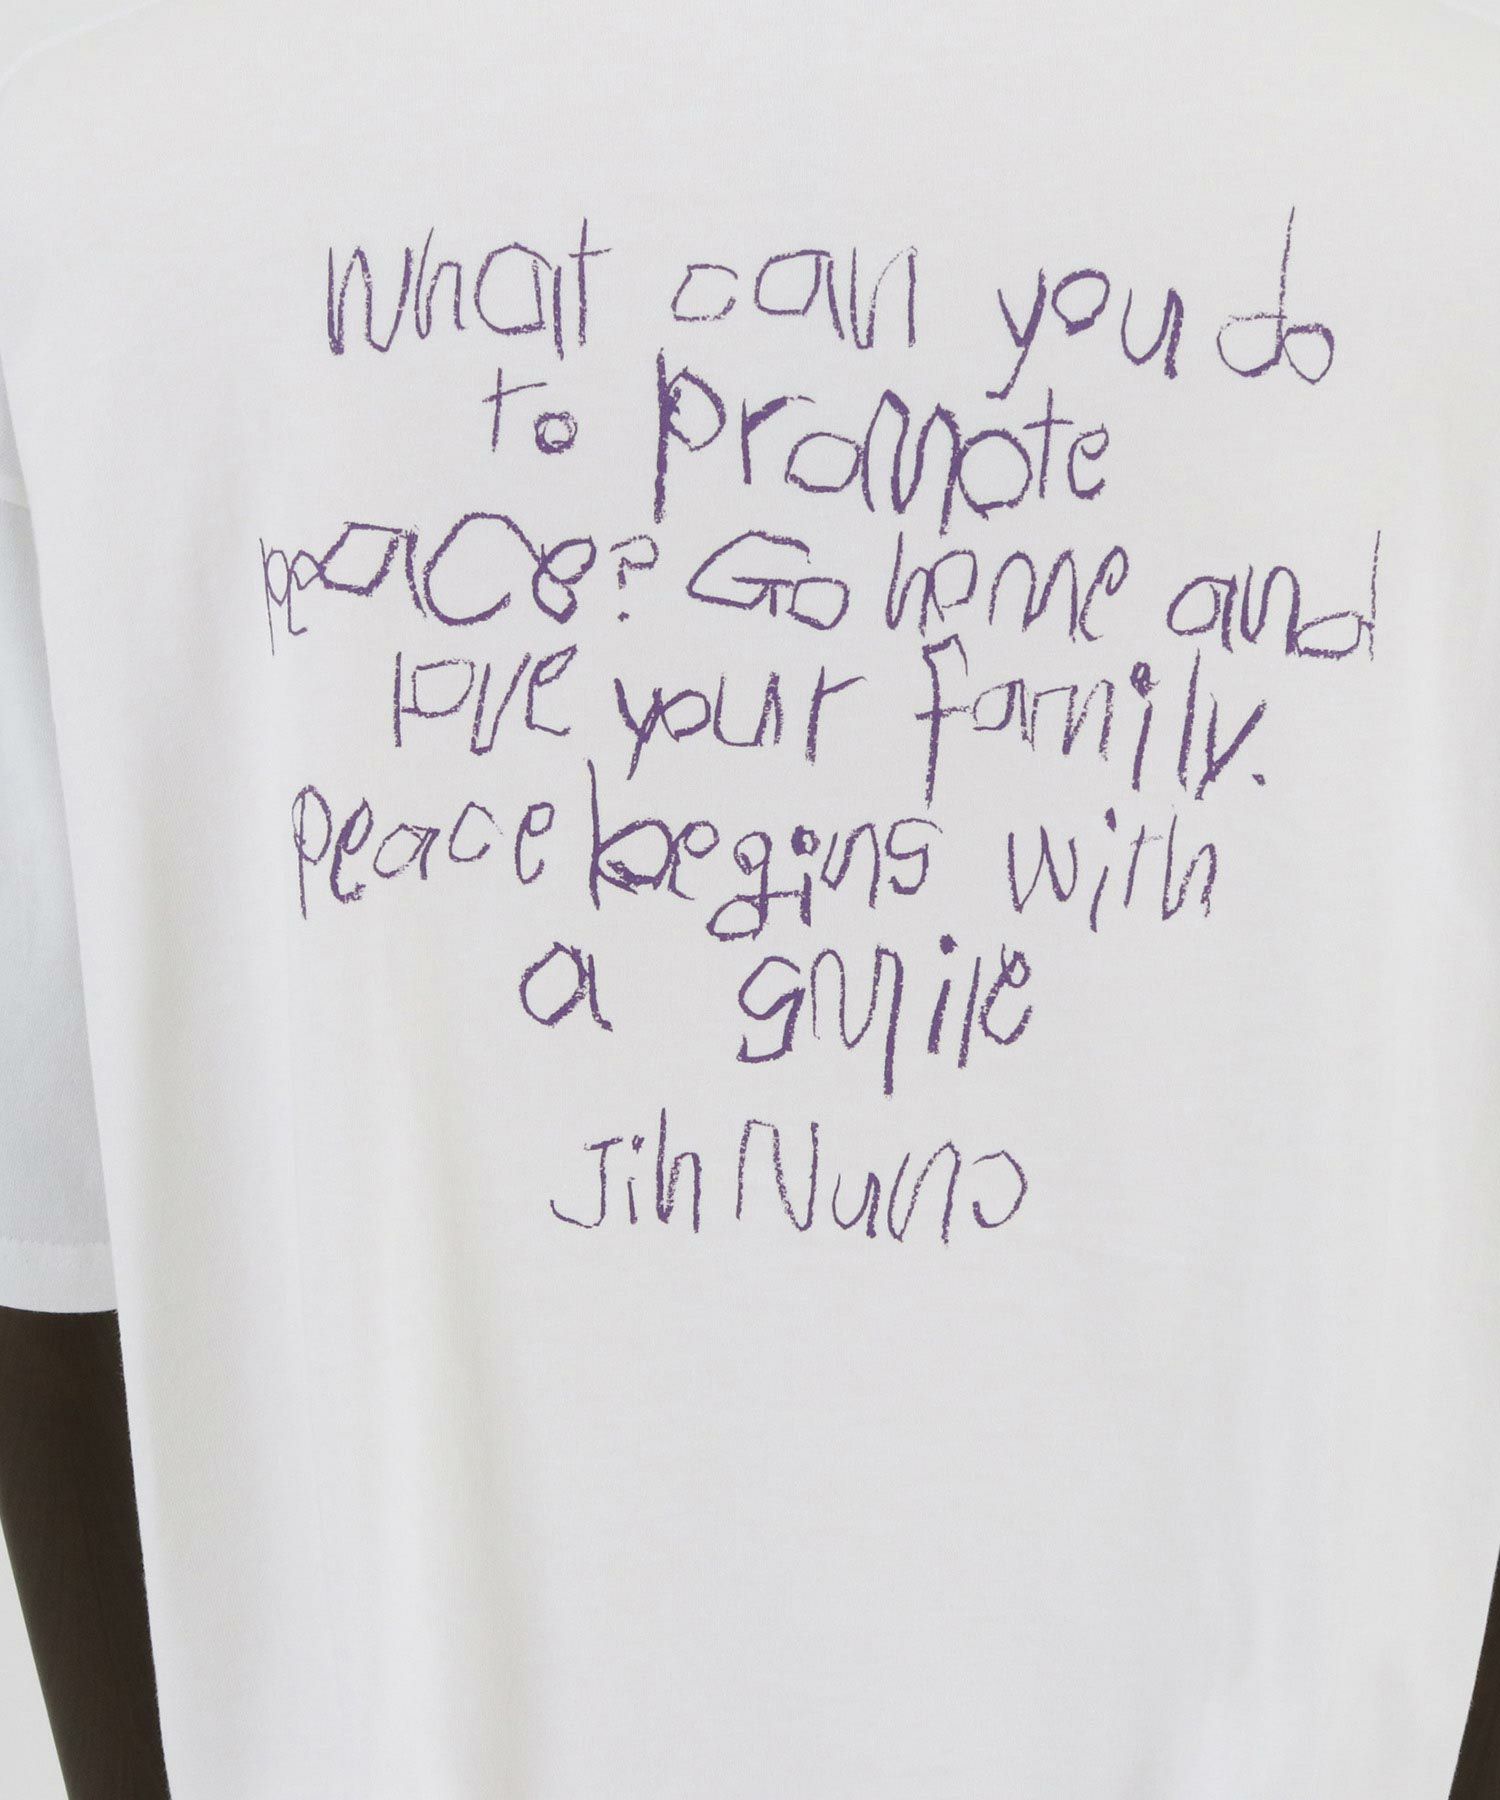 What can you do
to promote
peace? Go home and
love your family.
Peace begins with
a smile
Jih Nuno